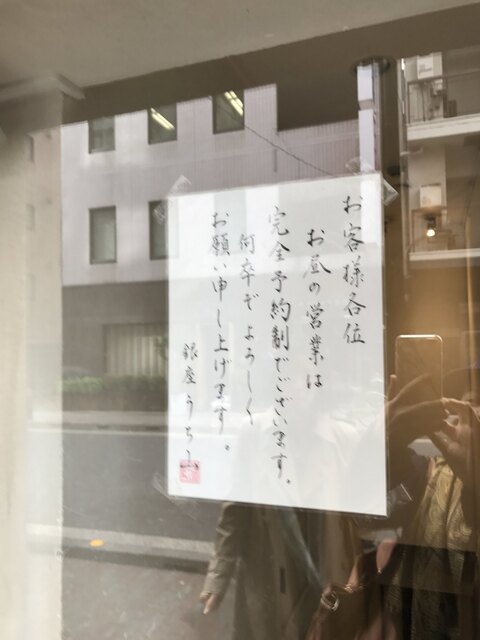 お客様各位
お昼の営業は
完全予約制でございます。
何卒ぞよろしく
お願い申し上げます。
銀座うち山